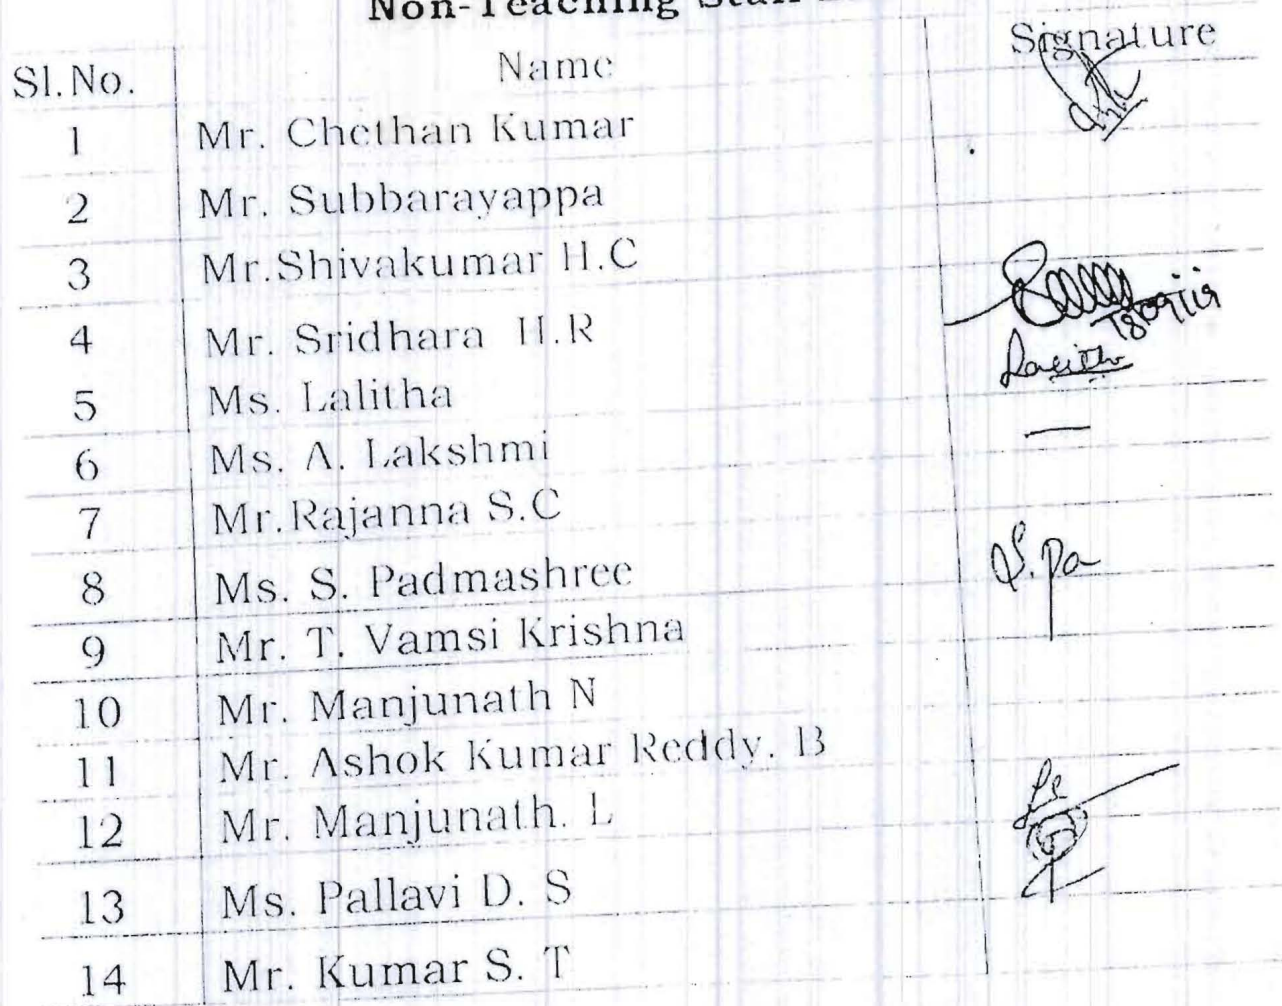 Non-Teaching Staff
Sl.No. Name Signature
1 Mr. Chethan Kumar
2 Mr. Subbarayappa
3 Mr.Shivakumar H.C
4 Mr. Sridhara H.R 18/09/19
5 Ms. Lalitha Lalitha
6 Ms. A. Lakshmi —
7 Mr.Rajanna S.C
8 Ms. S. Padmashree S.Pa
9 Mr. T. Vamsi Krishna
10 Mr. Manjunath N
11 Mr. Ashok Kumar Reddy. B
12 Mr. Manjunath. L
13 Ms. Pallavi D. S
14 Mr. Kumar S. T